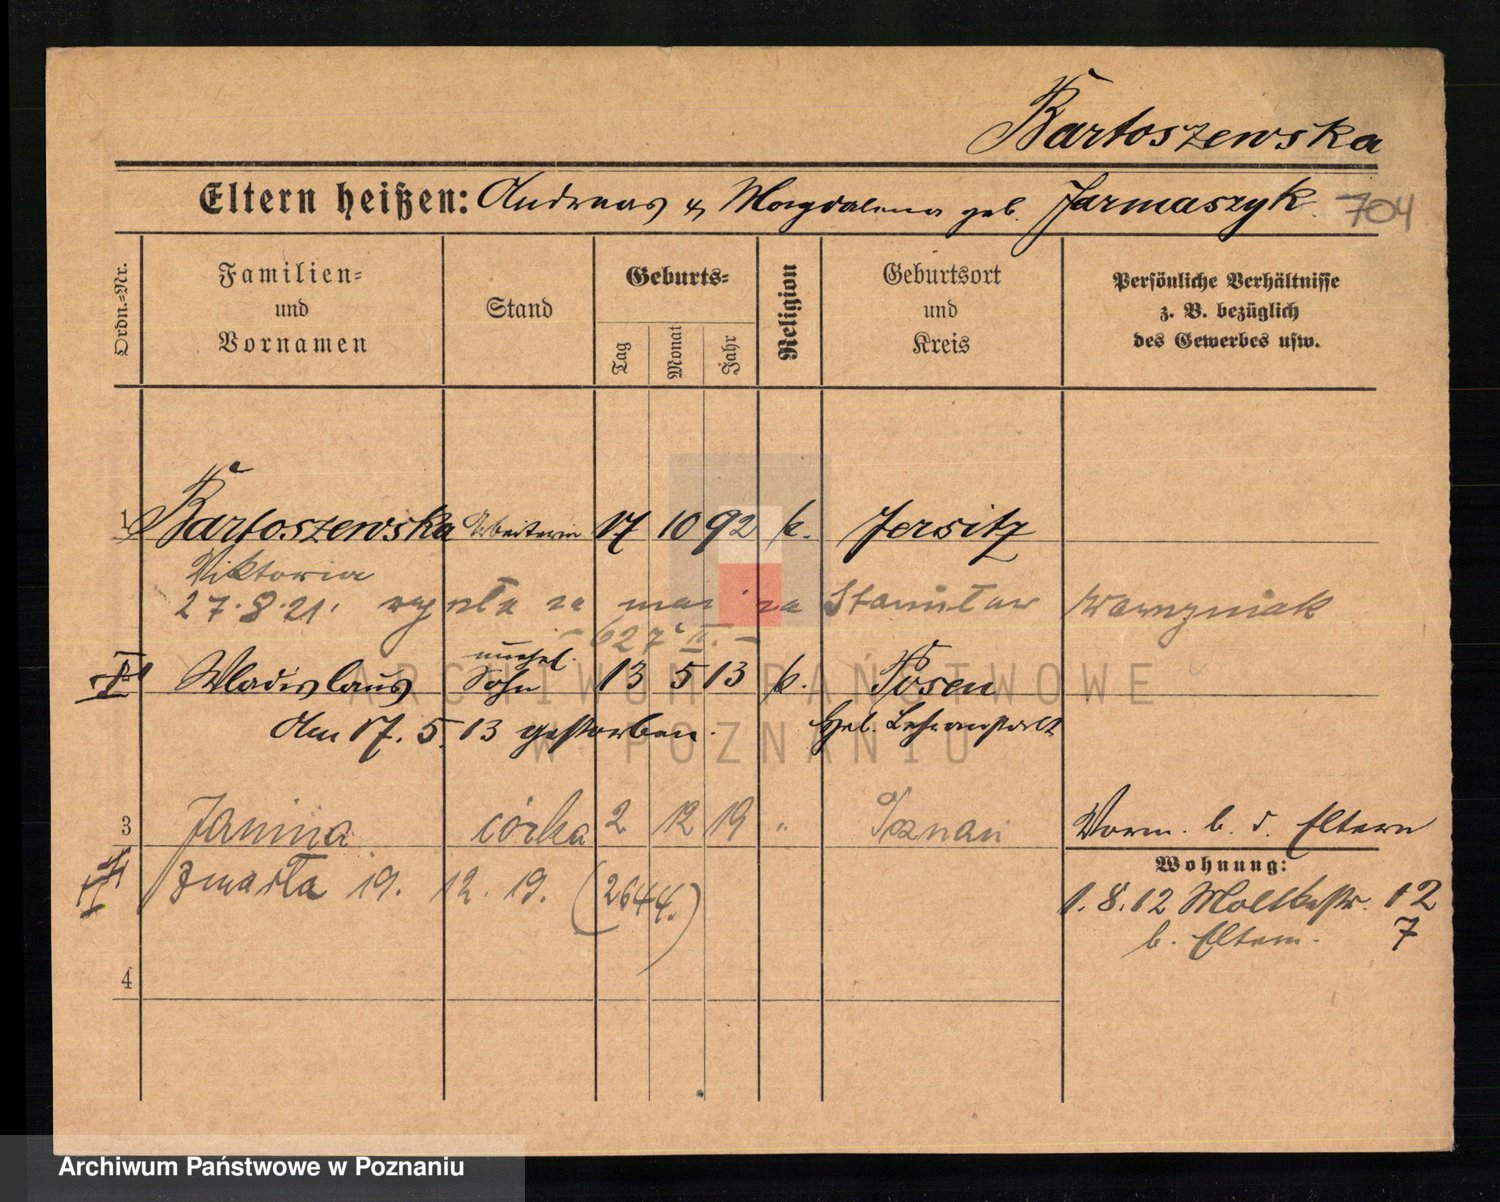 Bartoszewska
Eltern heißen: Andreas & Magdalena geb. Jarmaszyk. 704
Ordn.=Nr.
Familien=
und
Vornamen
Stand
Geburts=
Tag
Monat
Jahr
Religion
Geburtsort
und
Kreis
Persönliche Verhältnisse
z. B. bezüglich
des Gewerbes usw.
1 Bartoszewska Arbeiterin 17 10 92 k. Jersitz
Viktoria
27.8.21. wyszła za mąż za Stanisław Wawrzyniak
- 627 II. -
unehel.
Wladislaus Sohn 13 5 13 k. Posen
Am 17.5.13 gestorben. Lehranstalt
3 Janina córka 2 12 19 " Poznań
Vorm. b. d. Eltern
zmarła 19. 12. 19. (2644.)
Wohnung:
1.8.12 Moltkestr. 12
b. Eltern. 7
4
ARCHIWUM PAŃSTWOWE
W POZNANIU
Archiwum Państwowe w Poznaniu